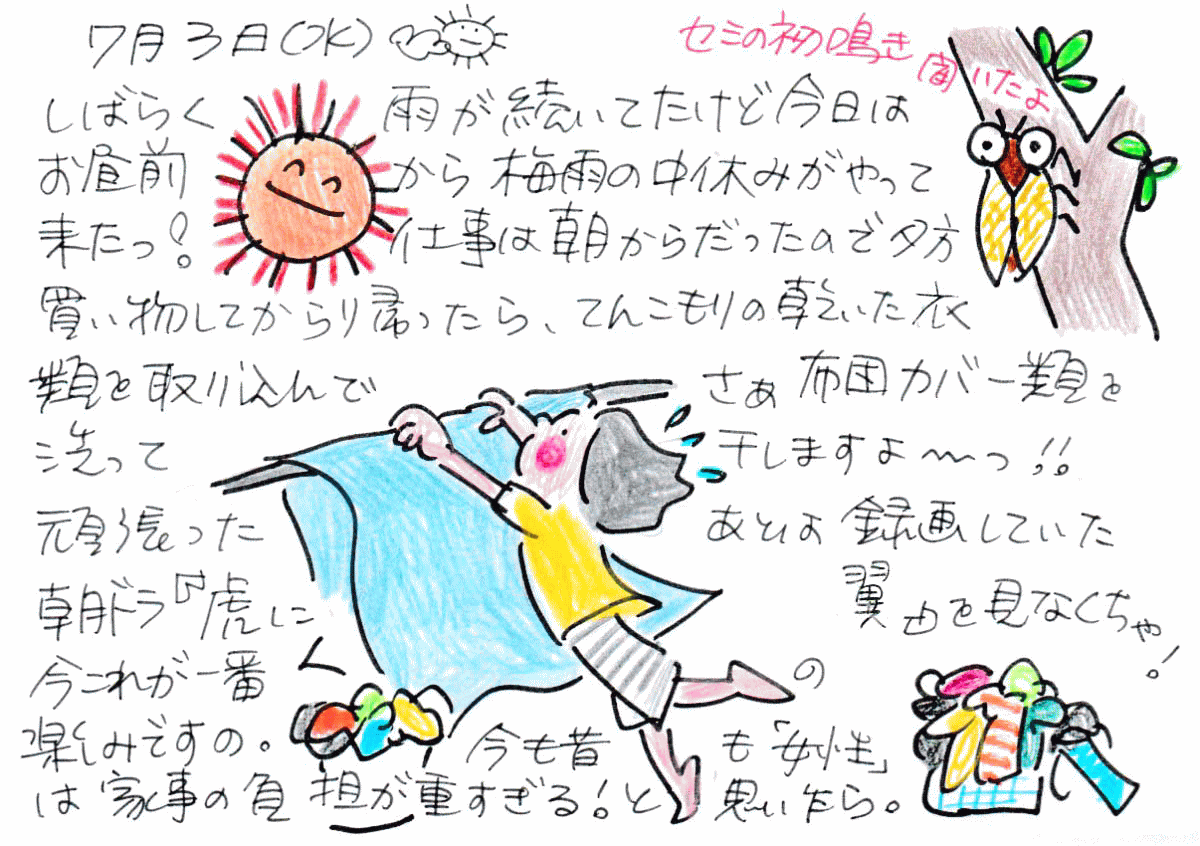 7月3日(水)
セミの初鳴き
聞いたよ
しばらく 雨が続いてたけど今日は
お昼前 から梅雨の中休みがやって
来たっ! 仕事は朝からだったので夕方
買い物してからり帰ったら、てんこもりの乾いた衣
類を取り込んで さぁ布団カバー類を
洗って 干しますよ〜〜っ!!
頑張った あとは録画していた
朝ドラ『虎に 翼』を見なくちゃ!
今これが一番 の
楽しみですの。 今も昔 も「女性」
は家事の負 担が重すぎる!と 思いながら。